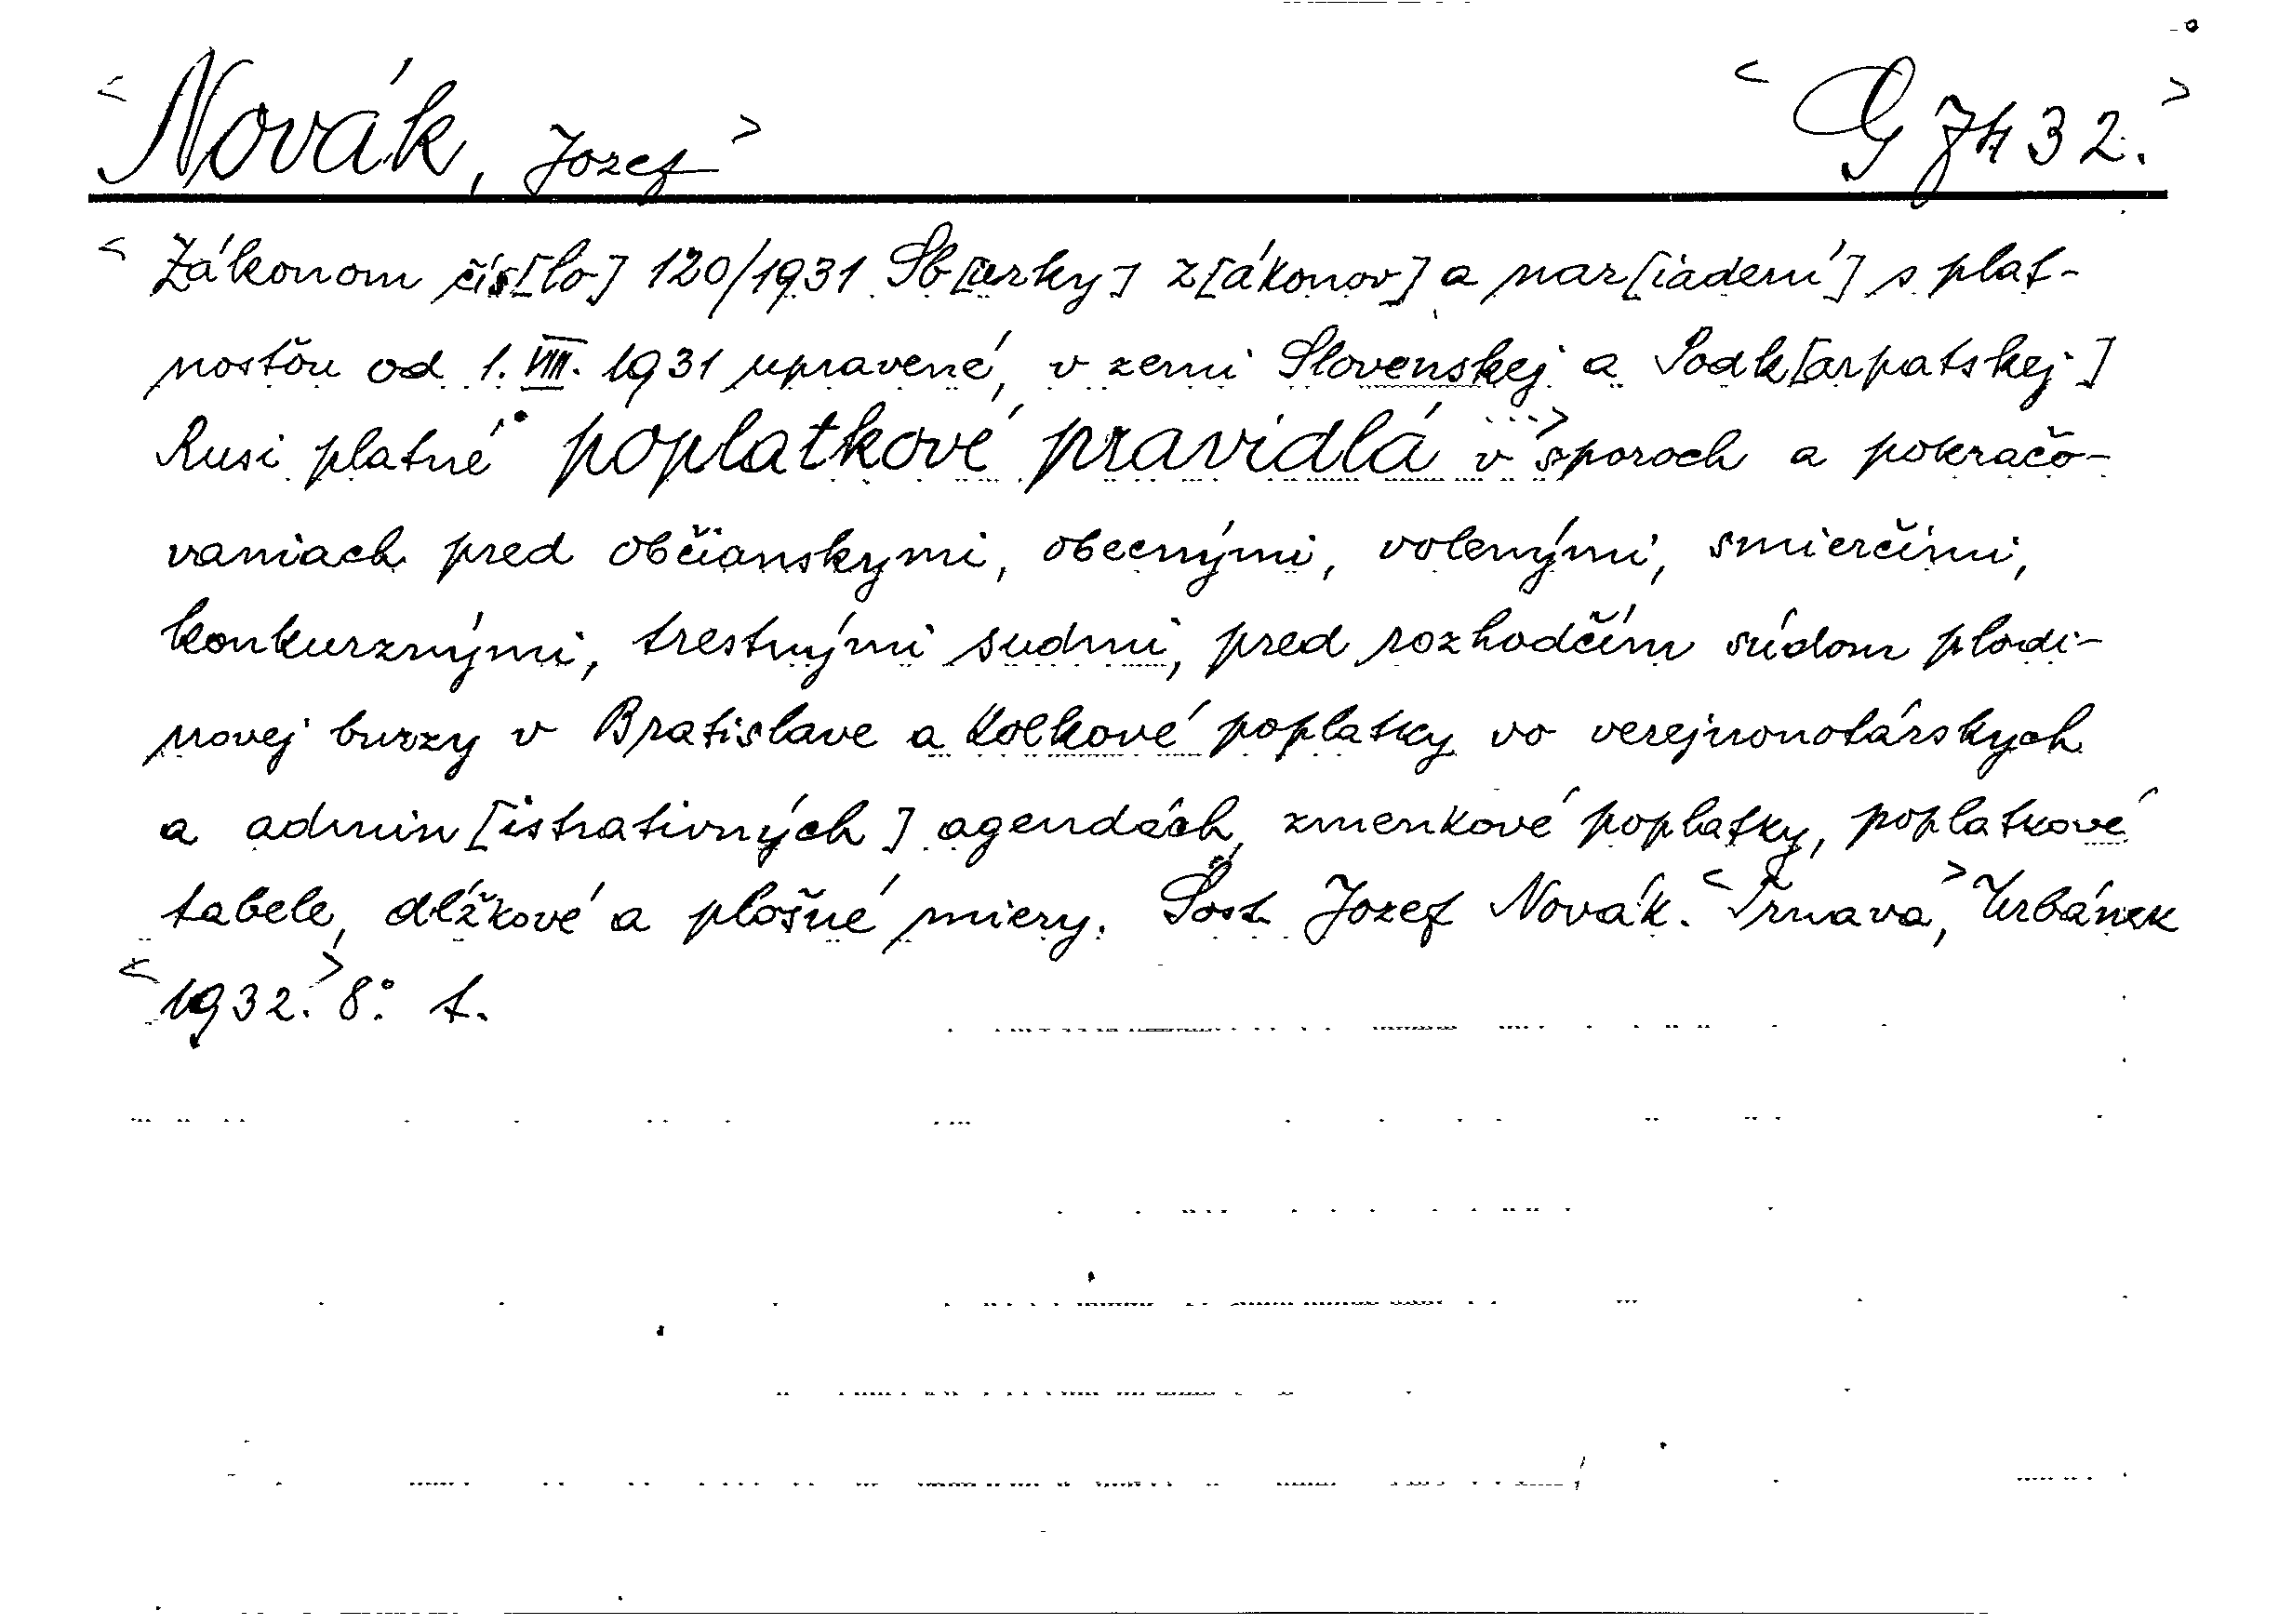 <Novák, Jozef> <G 7432.>
<Zákonom čís[lo] 120/1931 Sb[ierky] z[ákonov] a nar[iadení] s plat-
nosťou od 1. VIII. 1931 upravené, v zemi Slovenskej a Podk[arpatskej]
Rusi platné poplatkové pravidlá ...> v sporoch a pokračo-
vaniach pred občianskymi, obecnými, volenými, smierčími,
konkurznými, trestnými sudmi, pred rozhodčím súdom plodi-
novej burzy v Bratislave a kolkové poplatky vo verejnonotárskych
a admin[istratívnych] agendách, zmenkové poplatky, poplatkové
tabele, dĺžkové a plošné miery. Sost. Jozef Novák. <Trnava,> Urbánek
<1932.> 8°. t.